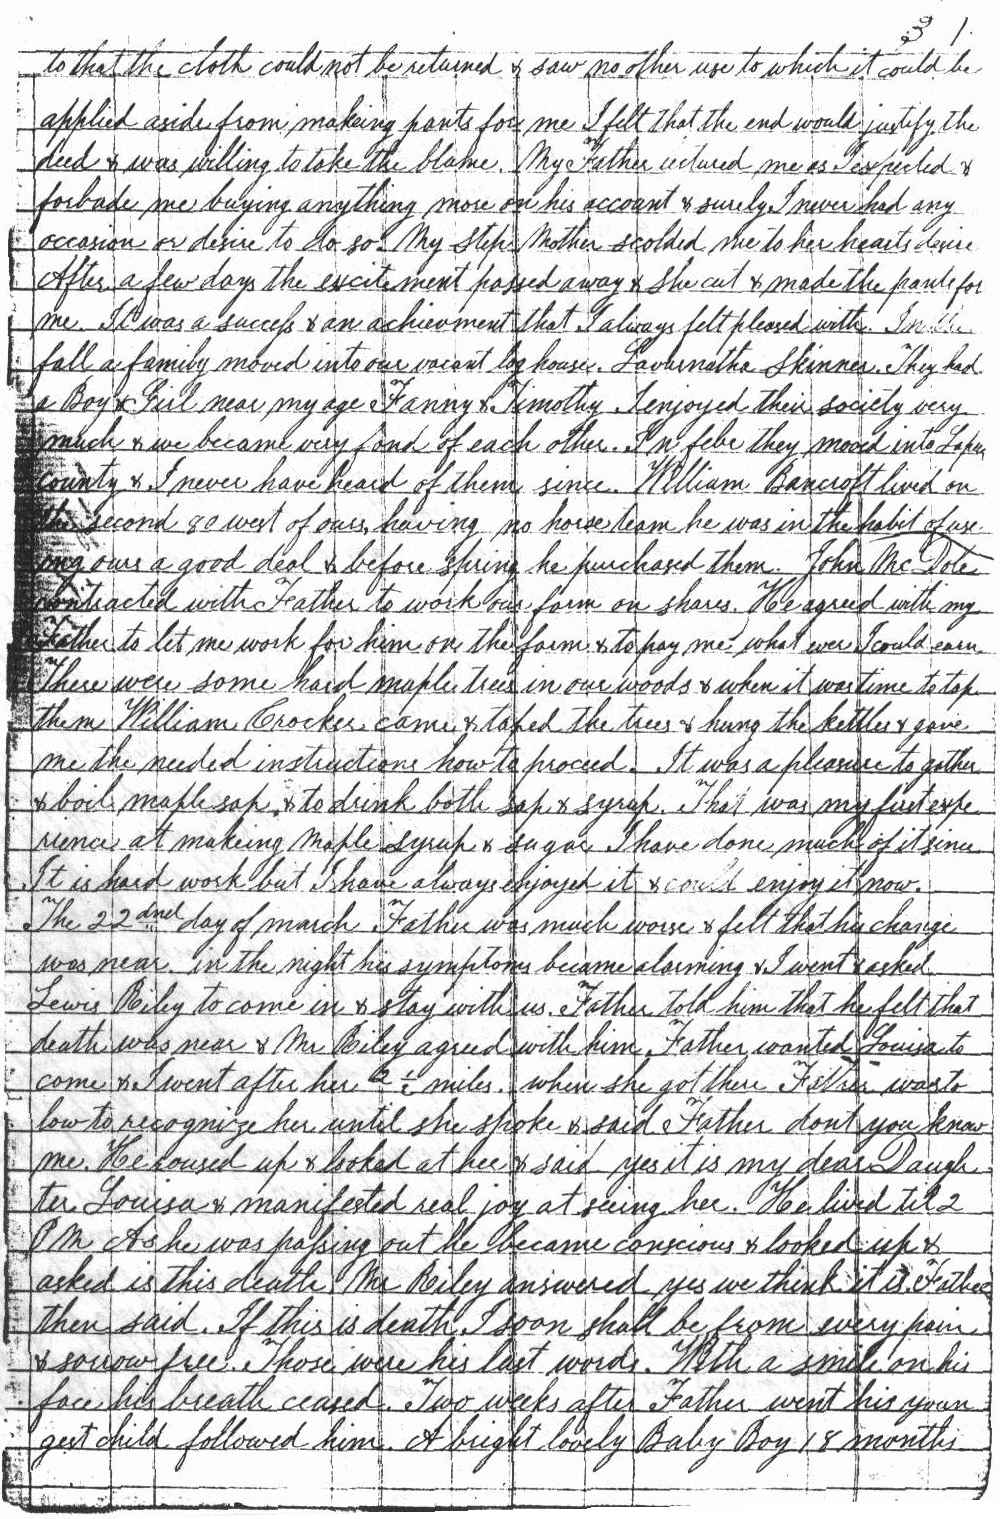 31
to that the cloth could not be returned & saw no other use to which it could be
applied aside from makeing pants for me I felt that the end would justify the
deed & was willing to take the blame. My Father lectured me as I expected &
forbade me buying anything more on his account & surely I never had any
occasion or desire to do so. My Step Mother scolded me to her hearts desire
After a few days the excitement passed away & she cut & made the pants for
me. It was a success & an achievment that I always felt pleased with. In the
fall a family moved into our vacant log house. Skinner. They had
a Boy & Girl near my age Fanny & Timothy. I enjoyed their society very
much & we became very fond of each other. In febr they moved into Lapeer
county & I never have heard of them since. William Bancroft lived on
the second 80 west of ours, having no horse team he was in the habit of use
ing ours a good deal & before spring he purchased them. John McDole
contracted with Father to work our farm on shares. He agreed with my
Father to let me work for him on the farm & to pay me what ever I could earn.
There were some hard maple trees in our woods & when it was time to tap
them William Crocker came & taped the trees & hung the kettles & gave
me the needed instructions how to proceed. It was a pleasure to gather
& boil maple sap, & to drink both sap & syrup. That was my first expe
rience at makeing maple syrup & sugar I have done much of it since
It is hard work but I have always enjoyed it & could enjoy it now.
The 22dnd day of march Father was much worse & felt that his change
was near. in the night his symptoms became alarming & I went & asked
Lewis Riley to come in & stay with us. Father told him that he felt that
death was near & Mr Riley agreed with him. Father wanted Louisa to
come & I went after her 2 1/2 miles. when she got there Father was to
low to recognize her until she spoke & said Father dont you know
me. He roused up & looked at her & said yes it is my dear Daugh
ter Louisa & manifested real joy at seeing her. He lived til 2
PM As he was passing out he became conscious & looked up &
asked is this death Mr Riley answered yes we think it is. Father
then said. If this is death I soon shall be from every pain
& sorrow free. Those were his last words. With a smile on his
face his breath ceased. Two weeks after Father went his youn
gest child followed him. A bright lovely Baby Boy 18 months